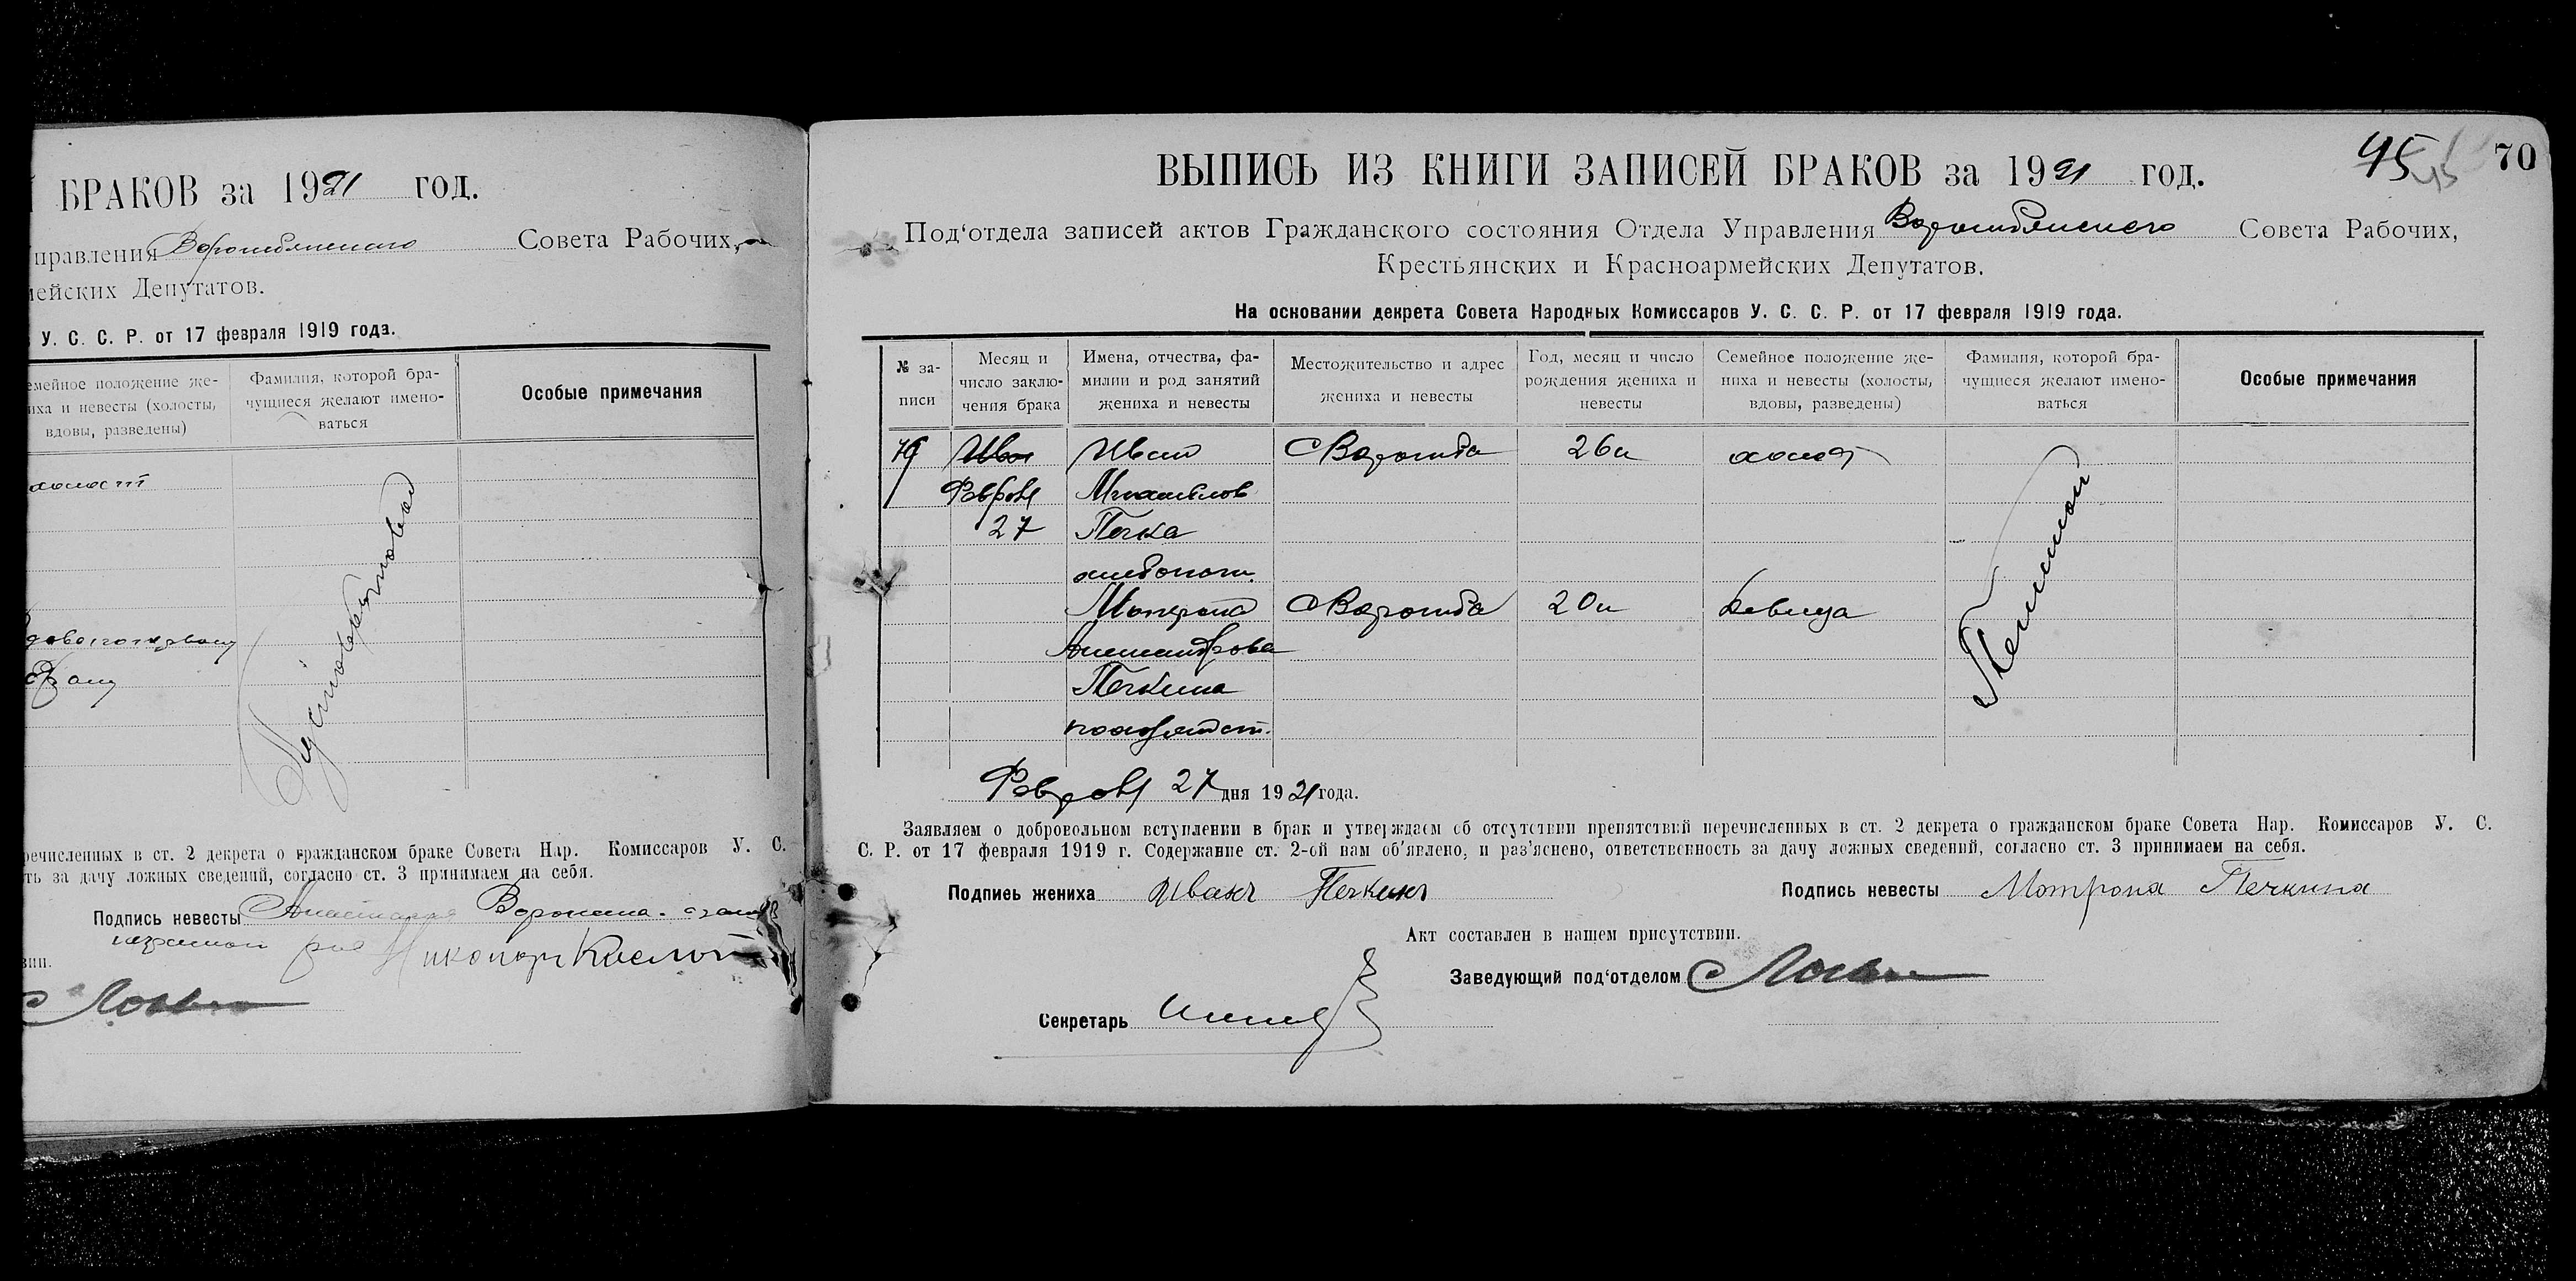 БРАКОВ за 1921 год.
правления Ворожбянского Совета Рабочих,
мейских Депутатов.
У. С. С. Р. от 17 февраля 1919 года.
емейное положение же-
ниха и невесты (холосты,
вдовы, разведены)
Фамилия, которой бра-
чущиеся желают имено-
ваться
Особые примечания
холост
речисленных в ст. 2 декрета о гражданском браке Совета Нар. Комиссаров У. С.
ть за дачу ложных сведений, согласно ст. 3 принимаем на себя.
Подпись невесты Анастасия Воронина
Никонор
вии.
45 45 70
ВЫПИСЬ ИЗ КНИГИ ЗАПИСЕЙ БРАКОВ за 1921 год.
Под‘отдела записей актов Гражданского состояния Отдела Управления Ворожбянского Совета Рабочих,
Крестьянских и Красноармейских Депутатов.
На основании декрета Совета Народных Комиссаров У. С. С. Р. от 17 февраля 1919 года.
№ за-
писи
Месяц и
число заклю-
чения брака
Имена, отчества, фа-
милии и род занятий
жениха и невесты
Местожительство и адрес
жениха и невесты
Год, месяц и число
рождения жениха и
невесты
Семейное положение же-
ниха и невесты (холосты,
вдовы, разведены)
Фамилия, которой бра-
чущиеся желают имено-
ваться
Особые примечания
Иван С Ворожба 26л холост
Михайлов
27 Печка
хлебопаш.
Матрона С Ворожба 20л девица
Александрова
Печкина
27 дня 1921 года.
Заявляем о добровольном вступлении в брак и утверждаем об отсутствии препятствий перечисленных в ст. 2 декрета о гражданском браке Совета Нар. Комиссаров У. С.
С. Р. от 17 февраля 1919 г. Содержание ст. 2-ой нам об’явлено, и раз’яснено, ответственность за дачу ложных сведений, согласно ст. 3 принимаем на себя.
Подпись жениха Иванъ Печкинъ Подпись невесты Мотрона Печкина
Акт составлен в нашем присутствии.
Заведующий под‘отделом
Секретарь